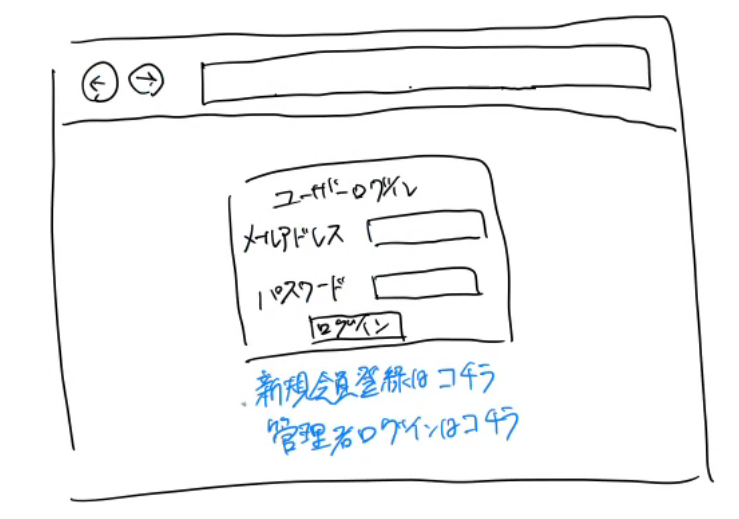 ユーザーログイン
メールアドレス
パスワード
ログイン
新規会員登録はコチラ
管理者ログインはコチラ